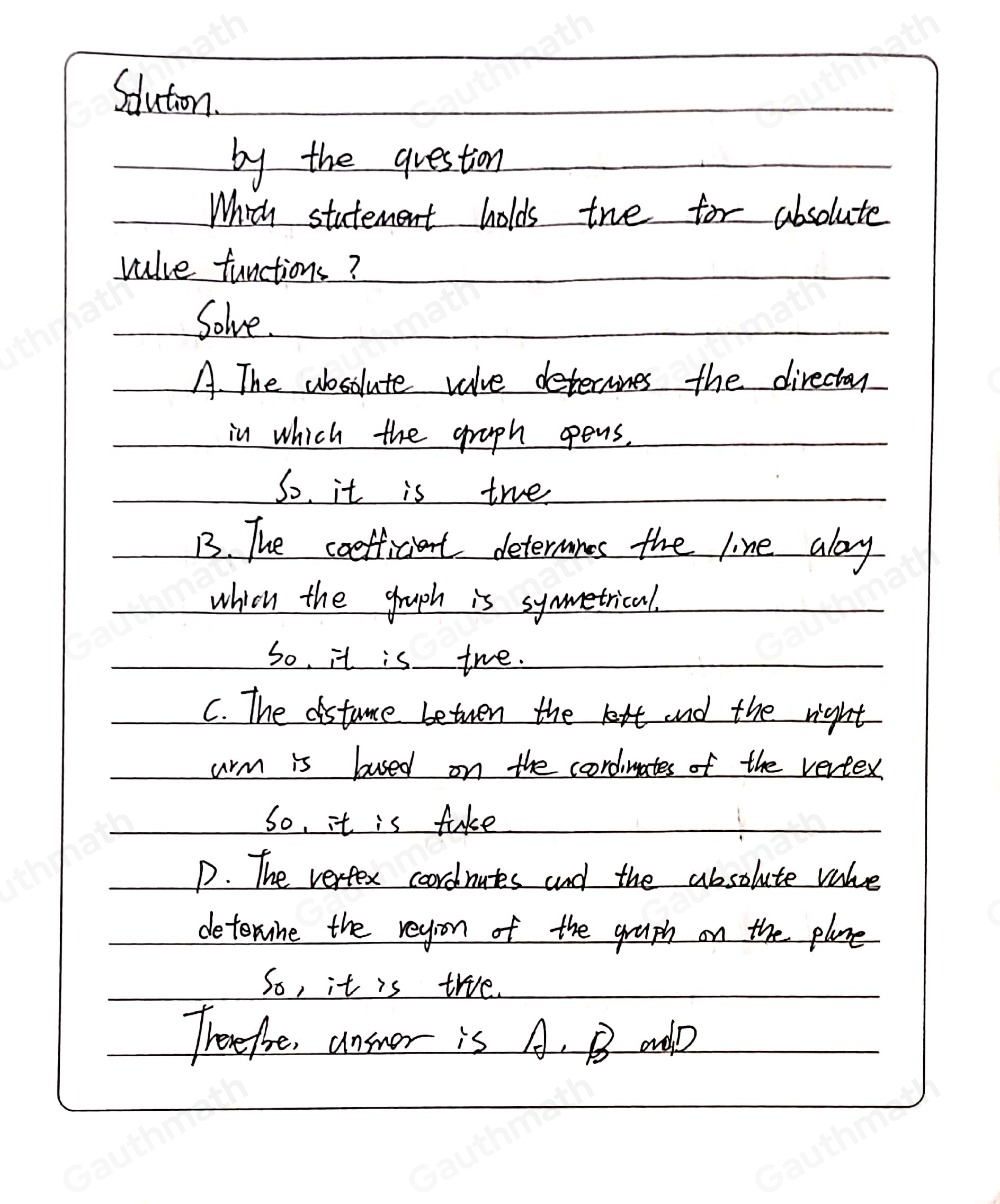 Solution.
by the question
Which statement holds true for absolute
value functions ?
Solve.
A. The absolute value determines the direction
in which the graph opens.
So. it is true
B. The coefficient determines the line along
which the graph is symmetrical.
So. it is true.
C. The distance between the left and the right
arm is based on the coordinates of the vertex
So. it is false
D. The vertex coordinates and the absolute value
determine the region of the graph on the plane
So, it is true.
Therefore, answer is A. B and D